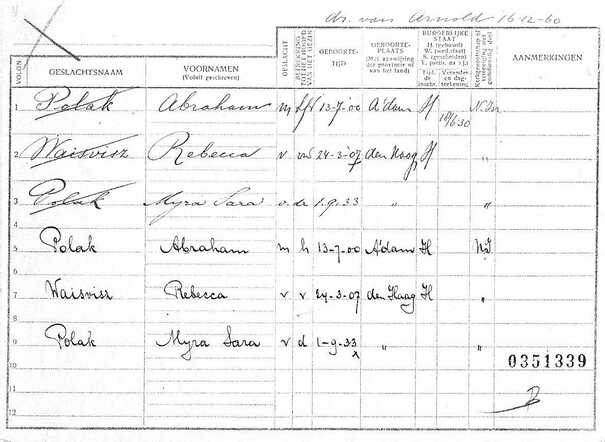 ds. van Arnold 16-12-60
VOLGN.
GESLACHTSNAAM
VOORNAMEN
(Voluit geschreven)
GESLACHT
BETREKKING
TOT HET HOOFD
VAN HET GEZIN
GEBOORTE-
TIJD
GEBOORTE-
PLAATS
(Met aanwijzing
der provincie of
van het land)
BURGERLIJKE
STAAT
H. (gehuwd)
S. (gescheiden)
Kerkgenootschap
AANMERKINGEN
1 Polak Abraham m hfd 13-7-00 A'dam H 18/6.30 N.Isr
2 Waisvisz Rebecca v vw 24-3-07 den Haag H "
3 Polak Myra Sara v. dr 1.9.33 " "
4
5 Polak Abraham m h 13-7-00 A'dam H N.I
6
7 Waisvisz Rebecca v v 24-3-07 den Haag H "
8
9 Polak Myra Sara v d 1-9-33 " "
10 0351339
11
12